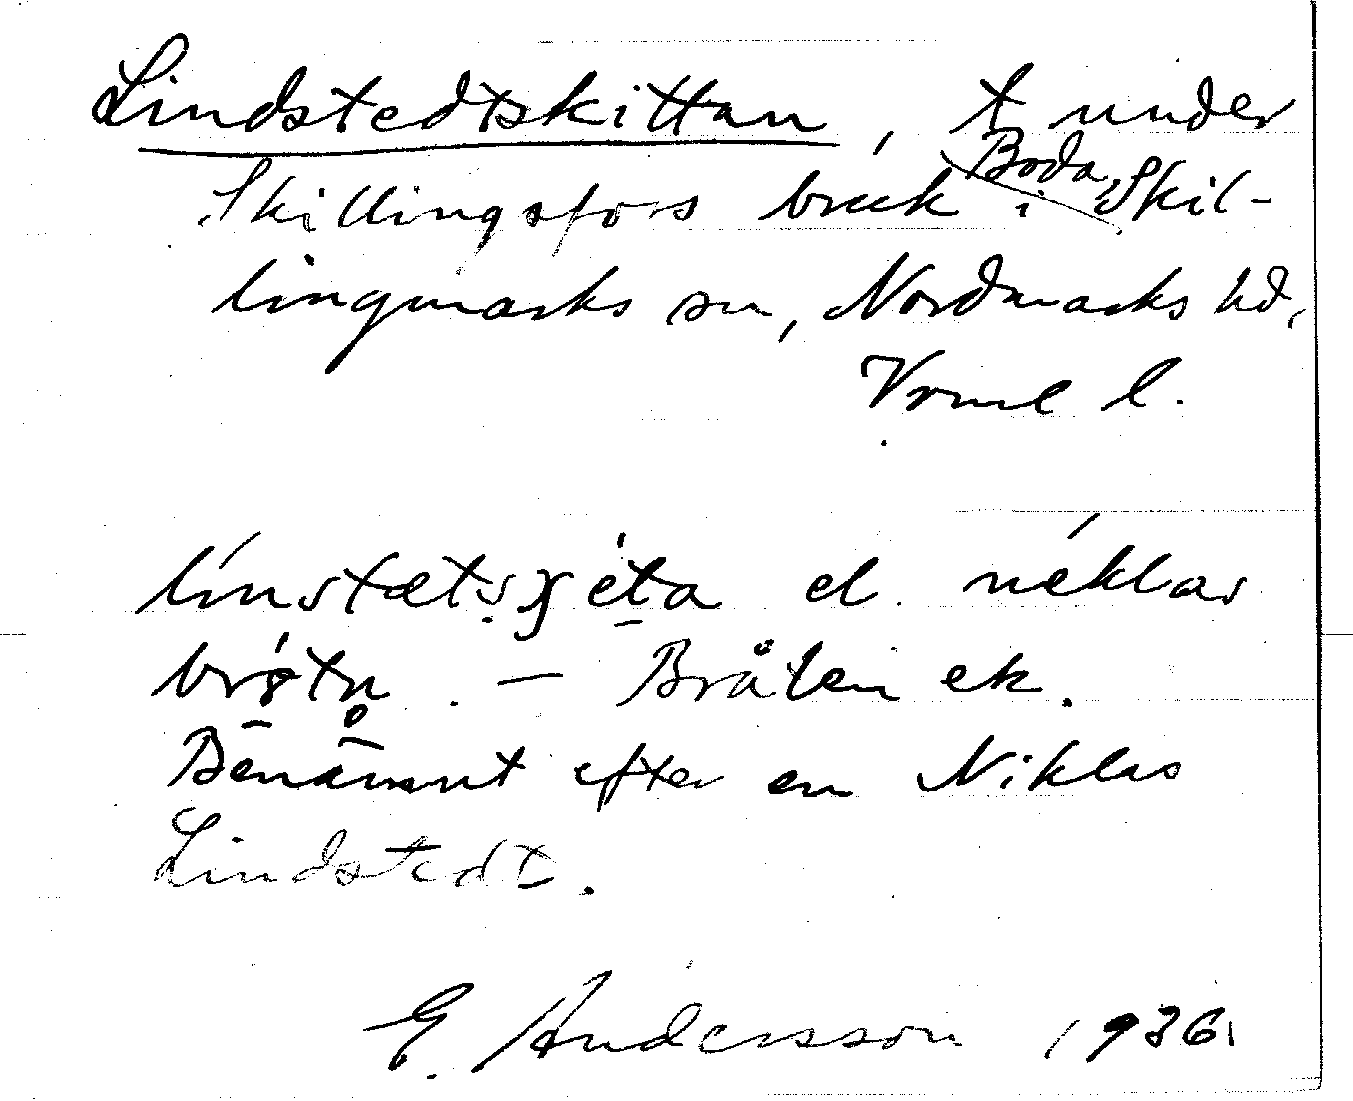 Lindstedtskittan, t under
Skillingsfors bruk i Boda, Skil-
lingmarks sn, Nordmarks hd,
Vrml l.
línstætsʃéta el. néklas
bråtn. – Bråten ek.
Benämnt efter en Niklas
Lindstedt.
E. Andersson 1936.